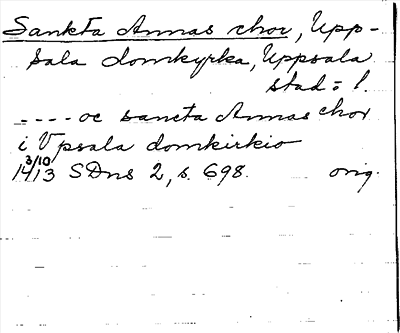 Sankta Annas chor, Upp-
sala domkyrka, Uppsala
stad = l.
---- oc sancta Annas chor
i Vpsala domkirkio
3/10
1413 SDns 2, s. 698. orig.